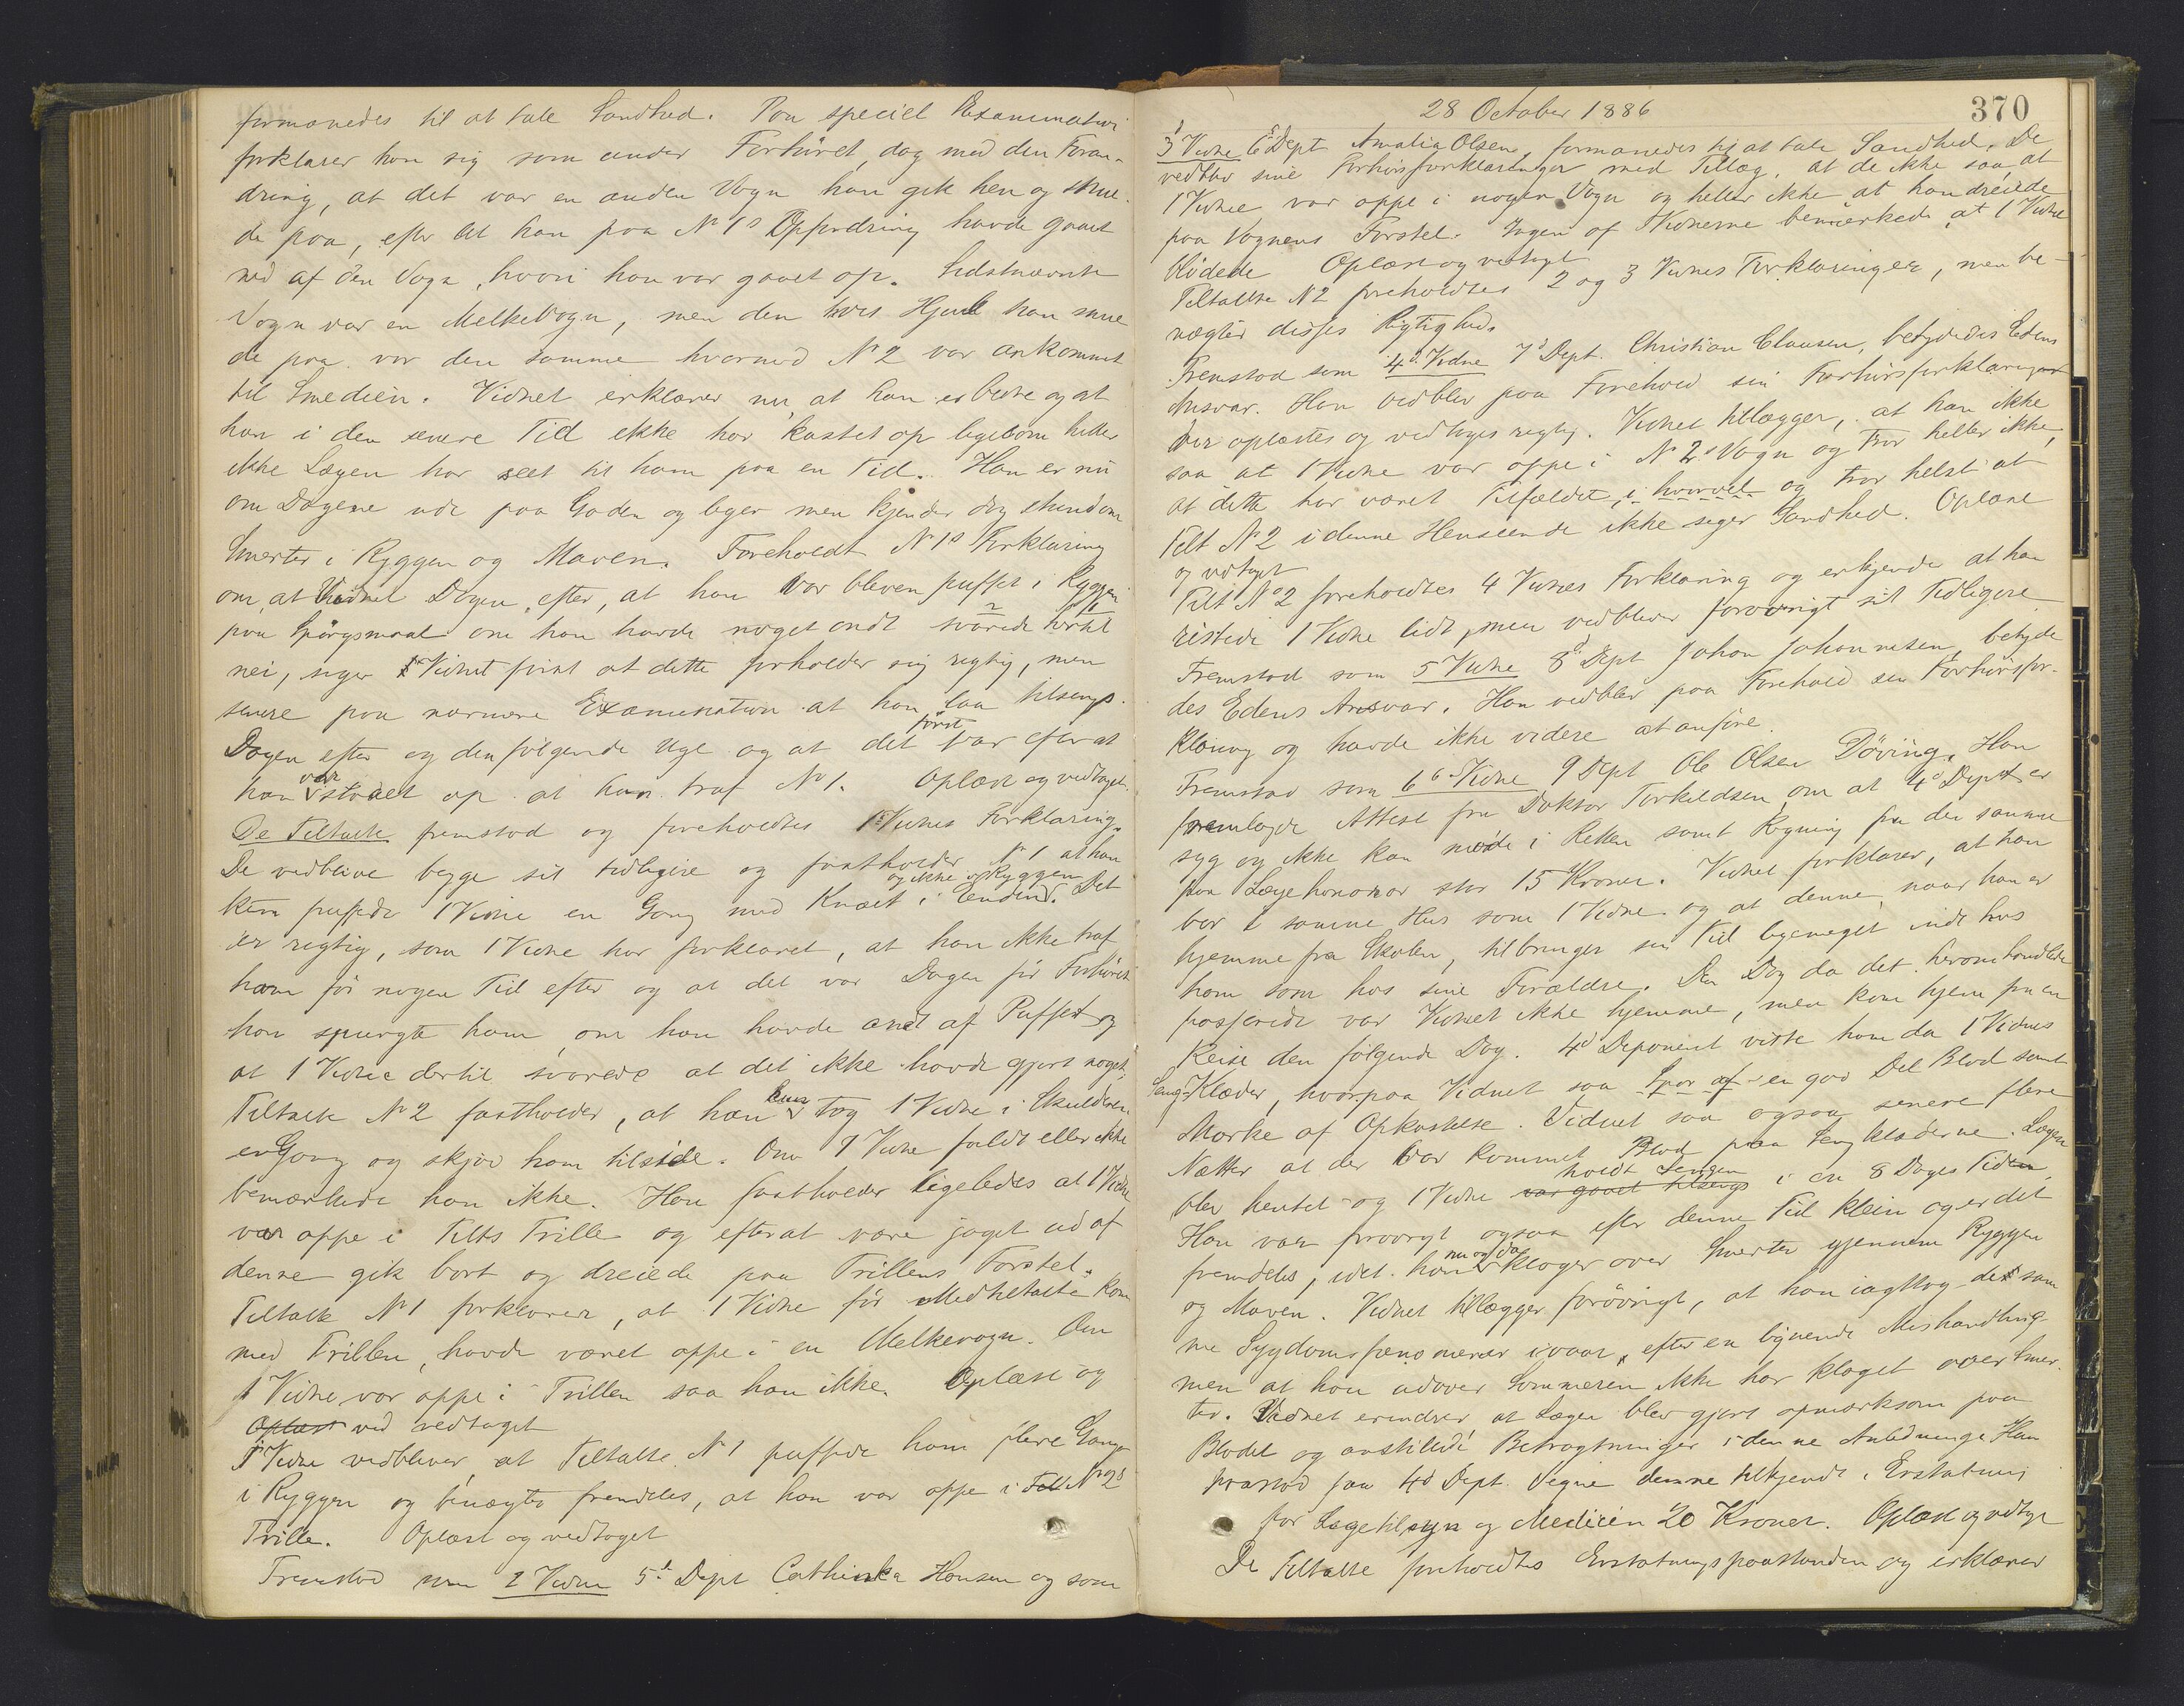 formanedes til at tale Sandhed. Paa speciel Examination
forklarer han sig som under Forhöret, dog med den Foran-
dring, at det var en anden Vogn han gik hen og skrue-
de paa, efter at han paa No 1s Opfordring havde gaaet
ned af den Vogn, hvori han var gaaet op. Sidstnævnte
Vogn var en Melkevogn, men den hvis Hjul han skrue
de paa var den samme hvormed No 2 var ankommet
til Smedien. Vidnet erklærer nu at han er bedre og at
han i den senere Tid ikke har kastet op ligesom heller
ikke Lægen har seet til ham paa en Tid. Han er nu
om Dagene ude paa Gaden og leger men kjender dog stundom
Smerter i Ryggen og Maven. Foreholdt No 1s Forklaring
om, at Vidnet Dagen, efter, at han var bleven puffet i Ryggen
paa Spörgsmaal om han havde noget ondt svarede hertil
nei, siger Vidnet först at dette forholder sig rigtig, men
senere paa nærmere Examination at han laa tilsengs
Dagen efter og den fölgende Uge og at det först var efter at
han var staaet op at han traf No 1. Oplæst og vedtaget.
De Tiltalte fremstod og foreholdtes 1 Vidnes Forklaring.
De vedblive begge sit tidligere og fastholder No 1 at han
kun puffede 1 Vidne en Gang med Knæet i Enden og ikke i Ryggen. Det
er rigtig, som 1 Vidne har forklaret, at han ikke traf
ham för nogen Tid efter og at det var Dagen för Forhöret
han spurgte ham, om han havde ondt af Puffet og
at 1 Vidne dertil svarede at det ikke havde gjort noget.
Tiltalte No 2 fastholder, at han kun tog 1 Vidne i Skulderen
en Gang og skjöv ham tilside. Om 1 Vidne faldt eller ikke
bemærkede han ikke. Han fastholder ligeledes at 1 Vidne
var oppe i Tilts Trille og efterat være jaget ud af
denne gik bort og dreiede paa Trillens Forstel.
Tiltalte No 1 forklarer, at 1 Vidne för Medtiltalte kom
med Trillen, havde været oppe i en Melkevogn. Om
1 Vidne var oppe i Trillen saa han ikke. Oplæst og
Oplæst ved vedtaget
1 Vidne vedbliver at Tiltalte No 1 puffede ham flere Gange
i Ryggen og benægter fremdeles, at han var oppe i Tilt No 2s
Trille. Oplæst og vedtaget
Fremstod som 2 Vidne 5t Dept Cathinka Hansen og som
28 October 1886
370
3 Vidne 6 Dept Amalia Olsen, formanedes til at tale Sandhed. De
vedblev sine Forhörsforklaringer med Tillæg, at de ikke saa, at
1 Vidne var oppe i nogen Vogn og heller ikke at han dreiede
paa Vognens Forstel. Ingen af Vidnerne bemærkede at 1 Vidne
blödede Oplæst og vedtaget
Tiltalte No 2 foreholdtes 2 og 3 Vidnes Forklaringer, men be-
nægter disses Rigtighed.
Fremstod som 4d Vidne 7d Dept. Christian Clausen, betydedes Edens
Ansvar. Han vedblev paa Forehold sin Forhörsforklaring
der oplæstes og vedtoges rigtig. Vidnet tillægger, at han ikke
saa at 1 Vidne var oppe i No 2s Vogn og tror heller ikke,
at dette har været Tilfældet, i hvorvel og tror helst at
Tilt No 2 i denne Henseende ikke siger Sandhed. Oplæst
og vedtaget
Tilt No 2 foreholdtes 4 Vidnes Forklaring og erkjende at han
ristede 1 Vidne lidt, men vedbliver forövrigt sit Tidligere.
Fremstod som 5 Vidne 8d Dept Johan Johannesen, betyde
des Edens Ansvar. Han vedblev paa Forehold sin Forhörsfor-
klaring og havde ikke videre at anföre.
Fremstod som 6 Vidne 9 Dept Ole Olsen Döving. Han
fremlagde Attest fra Doktor Torkildsen om at 4d Dept er
syg og ikke kan möde i Retten samt Regning fra den samme
paa Lægehonorar stor 15 Kroner. Vidnet forklarer, at han
bor i samme Hus som 1 Vidne og at denne, naar han er
hjemme fra Skolen, tilbringer sin Tid ligemeget inde hos
ham som hos sine Forældre. Den Dag da det heromhandlede
passerede var Vidnet ikke hjemme, men kom hjem fra en
Reise den fölgende Dag. 4d Deponent viste ham da 1 Vidnes
Seng-Klæder, hvorpaa Vidnet saa Spor af en god Del Blod samt
Mærke af Opkastelse. Vidnet saa ogsaa senere flere
Nætter at der var kommet Blod paa Sengklæderne. Lægen
blev hentet og 1 Vidne var gaaet tilsengs holdt Sengen i en 8 Dages Tid.
Han var forövrigt ogsaa efter denne Tid klein og er det
fremdeles, idet han nu og da klager over Smerter gjennem Ryggen
og Maven. Vidnet tillægger forövrigt, at han iagttog de sam
me Sygdomsfænomener ivaar, efter en lignende Mishandling
men at han udover Sommeren ikke har klaget over Smer-
ter. Vidnet erindrer at Lægen blev gjort opmærksom paa
Blodet og anstillede Betragtninger i denne Anledning. Han
paastod paa 4d Dept. Vegne denne tilkjendt i Erstatning
for Lægetilsyn og Medicin 20 Kroner. Oplæst og vedtaget
De Tiltalte foreholdtes Erstatningspaastanden og erklærer